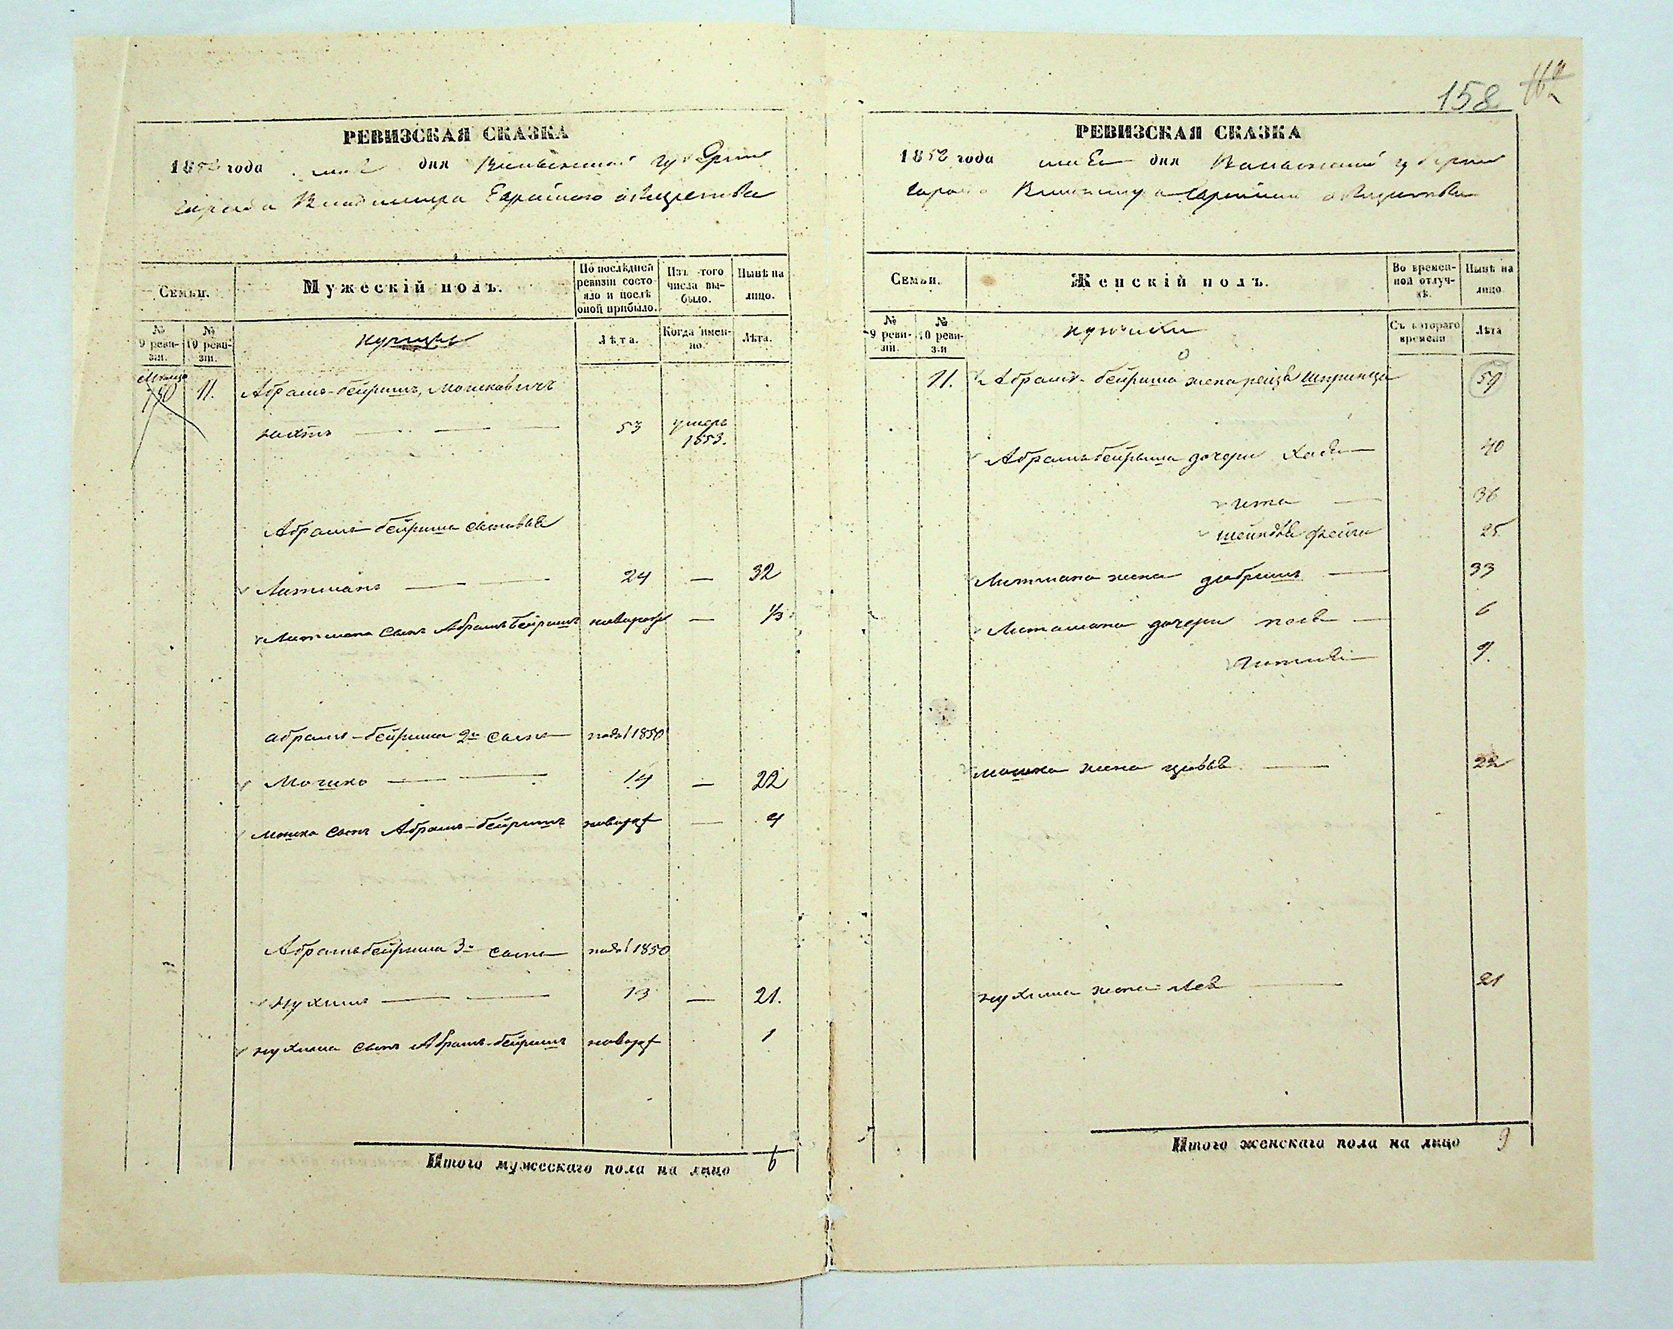 158
РЕВИЗСКАЯ СКАЗКА
1858 года мая дня Волынской губернии
города Владимира Еврейского общества
Семьи.
Мужескій полъ.
По последней ревизіи состояло и послѣ оной прибыло.
Изъ того числа выбыло.
Нынѣ на лицо.
№ 9 ревизіи.
№ 10 ревизіи.
купцы
Лѣта.
Когда именно.
Лѣта.
11. Абрамъ-бейришъ Мошковичъ
53 умеръ 1853.
Абрамъ бейриша сыновья
Литманъ 24 — 32
Литмана сынъ Абрамъ бейришъ новорож — 1/3
Абрамъ-бейриша 2й сынъ 1850
Мошко 14 — 22
Мошка сынъ Абрамъ-бейришъ новорж — 4
Абрамъ бейриша 3й сынъ 1850
Нухимъ 13 — 21.
Нухима сынъ Абрамъ-бейришъ новорж 1
Итого мужескаго пола на лицо 6
РЕВИЗСКАЯ СКАЗКА
1858 года мая дня Волынской губернии
города Владимира Еврейского общества
Семьи.
Женскій полъ.
Во временной отлучкѣ.
Нынѣ на лицо.
№ 9 ревизіи.
№ 10 ревизіи
Съ котораго времени
Лѣта
11. Абрамъ-бейриша жена рейзя Шпринца 59
Абрамъ бейриша дочери Хая 40
36
Шейндля фейга 25
Литмана жена добришъ 33
Литмана дочери 6
9.
Мошка жена цивья 22
Нухима жена Лея 21
Итого женскаго пола на лицо 9